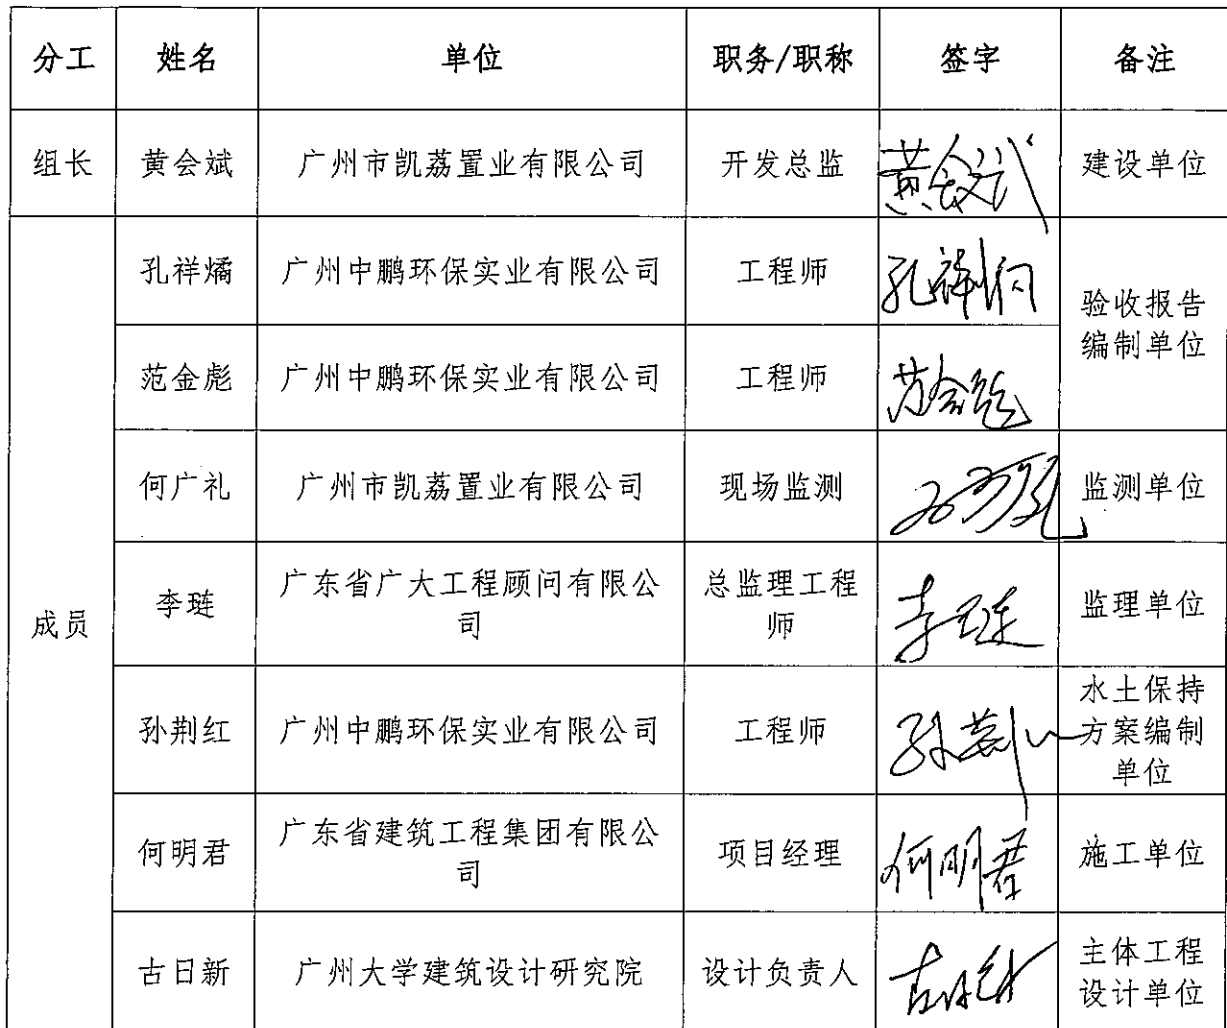 分工 姓名 单位 职务/职称 签字 备注
组长 黄会斌 广州市凯荔置业有限公司 开发总监 黄会斌 建设单位
成员
孔祥燏 广州中鹏环保实业有限公司 工程师 孔祥
验收报告
编制单位
范金彪 广州中鹏环保实业有限公司 工程师 范金彪
何广礼 广州市凯荔置业有限公司 现场监测 监测单位
李琏 广东省广大工程顾问有限公
司
总监理工程
师
李琏 监理单位
孙荆红 广州中鹏环保实业有限公司 工程师 孙荆
水土保持
方案编制
单位
何明君 广东省建筑工程集团有限公
司
项目经理 何明君 施工单位
古日新 广州大学建筑设计研究院 设计负责人 古日新
主体工程
设计单位